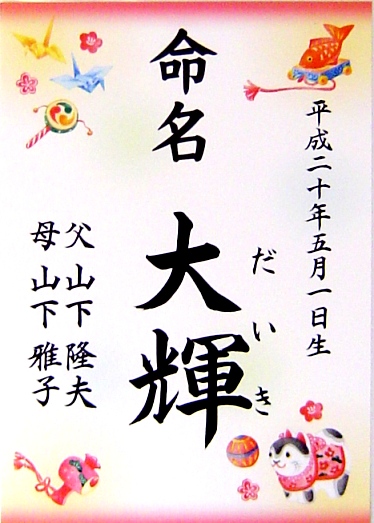 平成二十年五月一日生
命名
大輝
だいき
父 山下 隆夫
母 山下 雅子